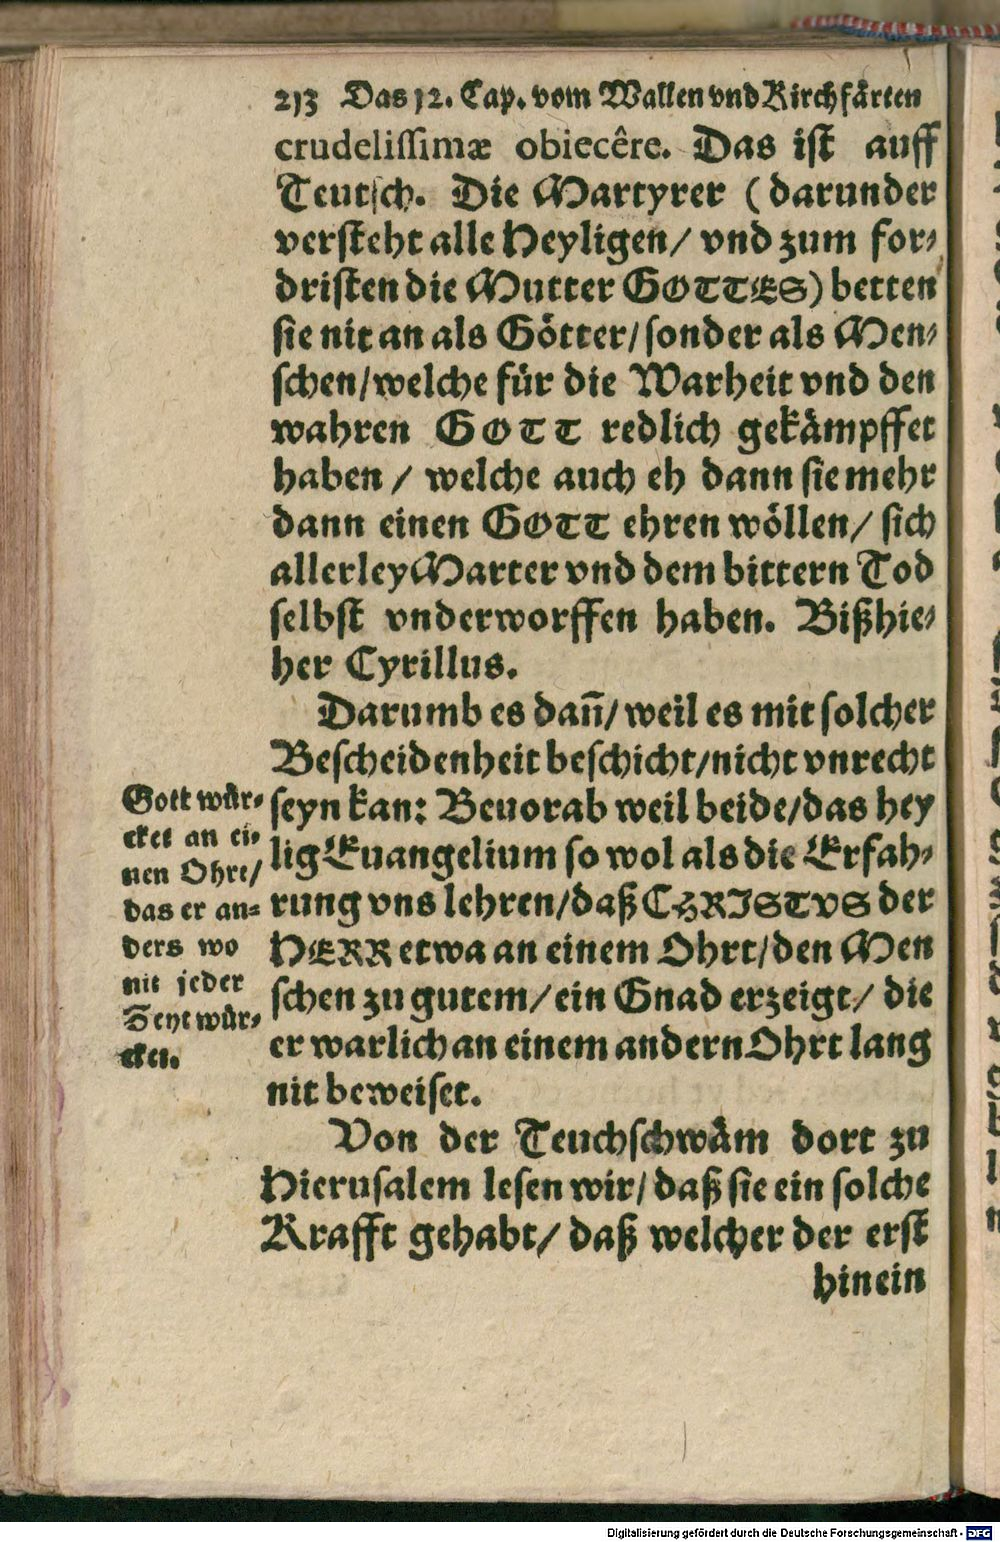 213 Das 12. Cap. vom Wallen vnd Kirchfårten
crudelissimæ obiecêre. Das ist auff
Teutsch. Die Martyrer (darunder
versteht alle Heyligen/ vnd zum for-
dristen die Mutter GOTTES) betten
sie nit an als Götter/ sonder als Men-
schen/ welche für die Warheit vnd den
wahren GOTT redlich gekåmpffet
haben / welche auch eh dann sie mehr
dann einen GOTT ehren wöllen/ sich
allerley Marter vnd dem bittern Tod
selbst vnderworffen haben. Bißhie-
her Cyrillus.
Darumb es dañ/ weil es mit solcher
Bescheidenheit beschicht/ nicht vnrecht
seyn kan: Beuorab weil beide/ das hey
lig Euangelium so wol als die Erfah-
rung vns lehren/ daß CHRISTVS der
HERR etwa an einem Ohrt/ den Men
schen zu gutem/ ein Gnad erzeigt/ die
er warlich an einem andern Ohrt lang
nit beweiset.
Von der Teuchschwåm dort zu
Hierusalem lesen wir/ daß sie ein solche
Krafft gehabt/ daß welcher der erst
hinein
Gott wür-
cket an ei-
nen Ohrt/
das er an-
ders wo
nit jeder
Zeyt wür-
cket.
Digitalisierung gefördert durch die Deutsche Forschungsgemeinschaft - DFG